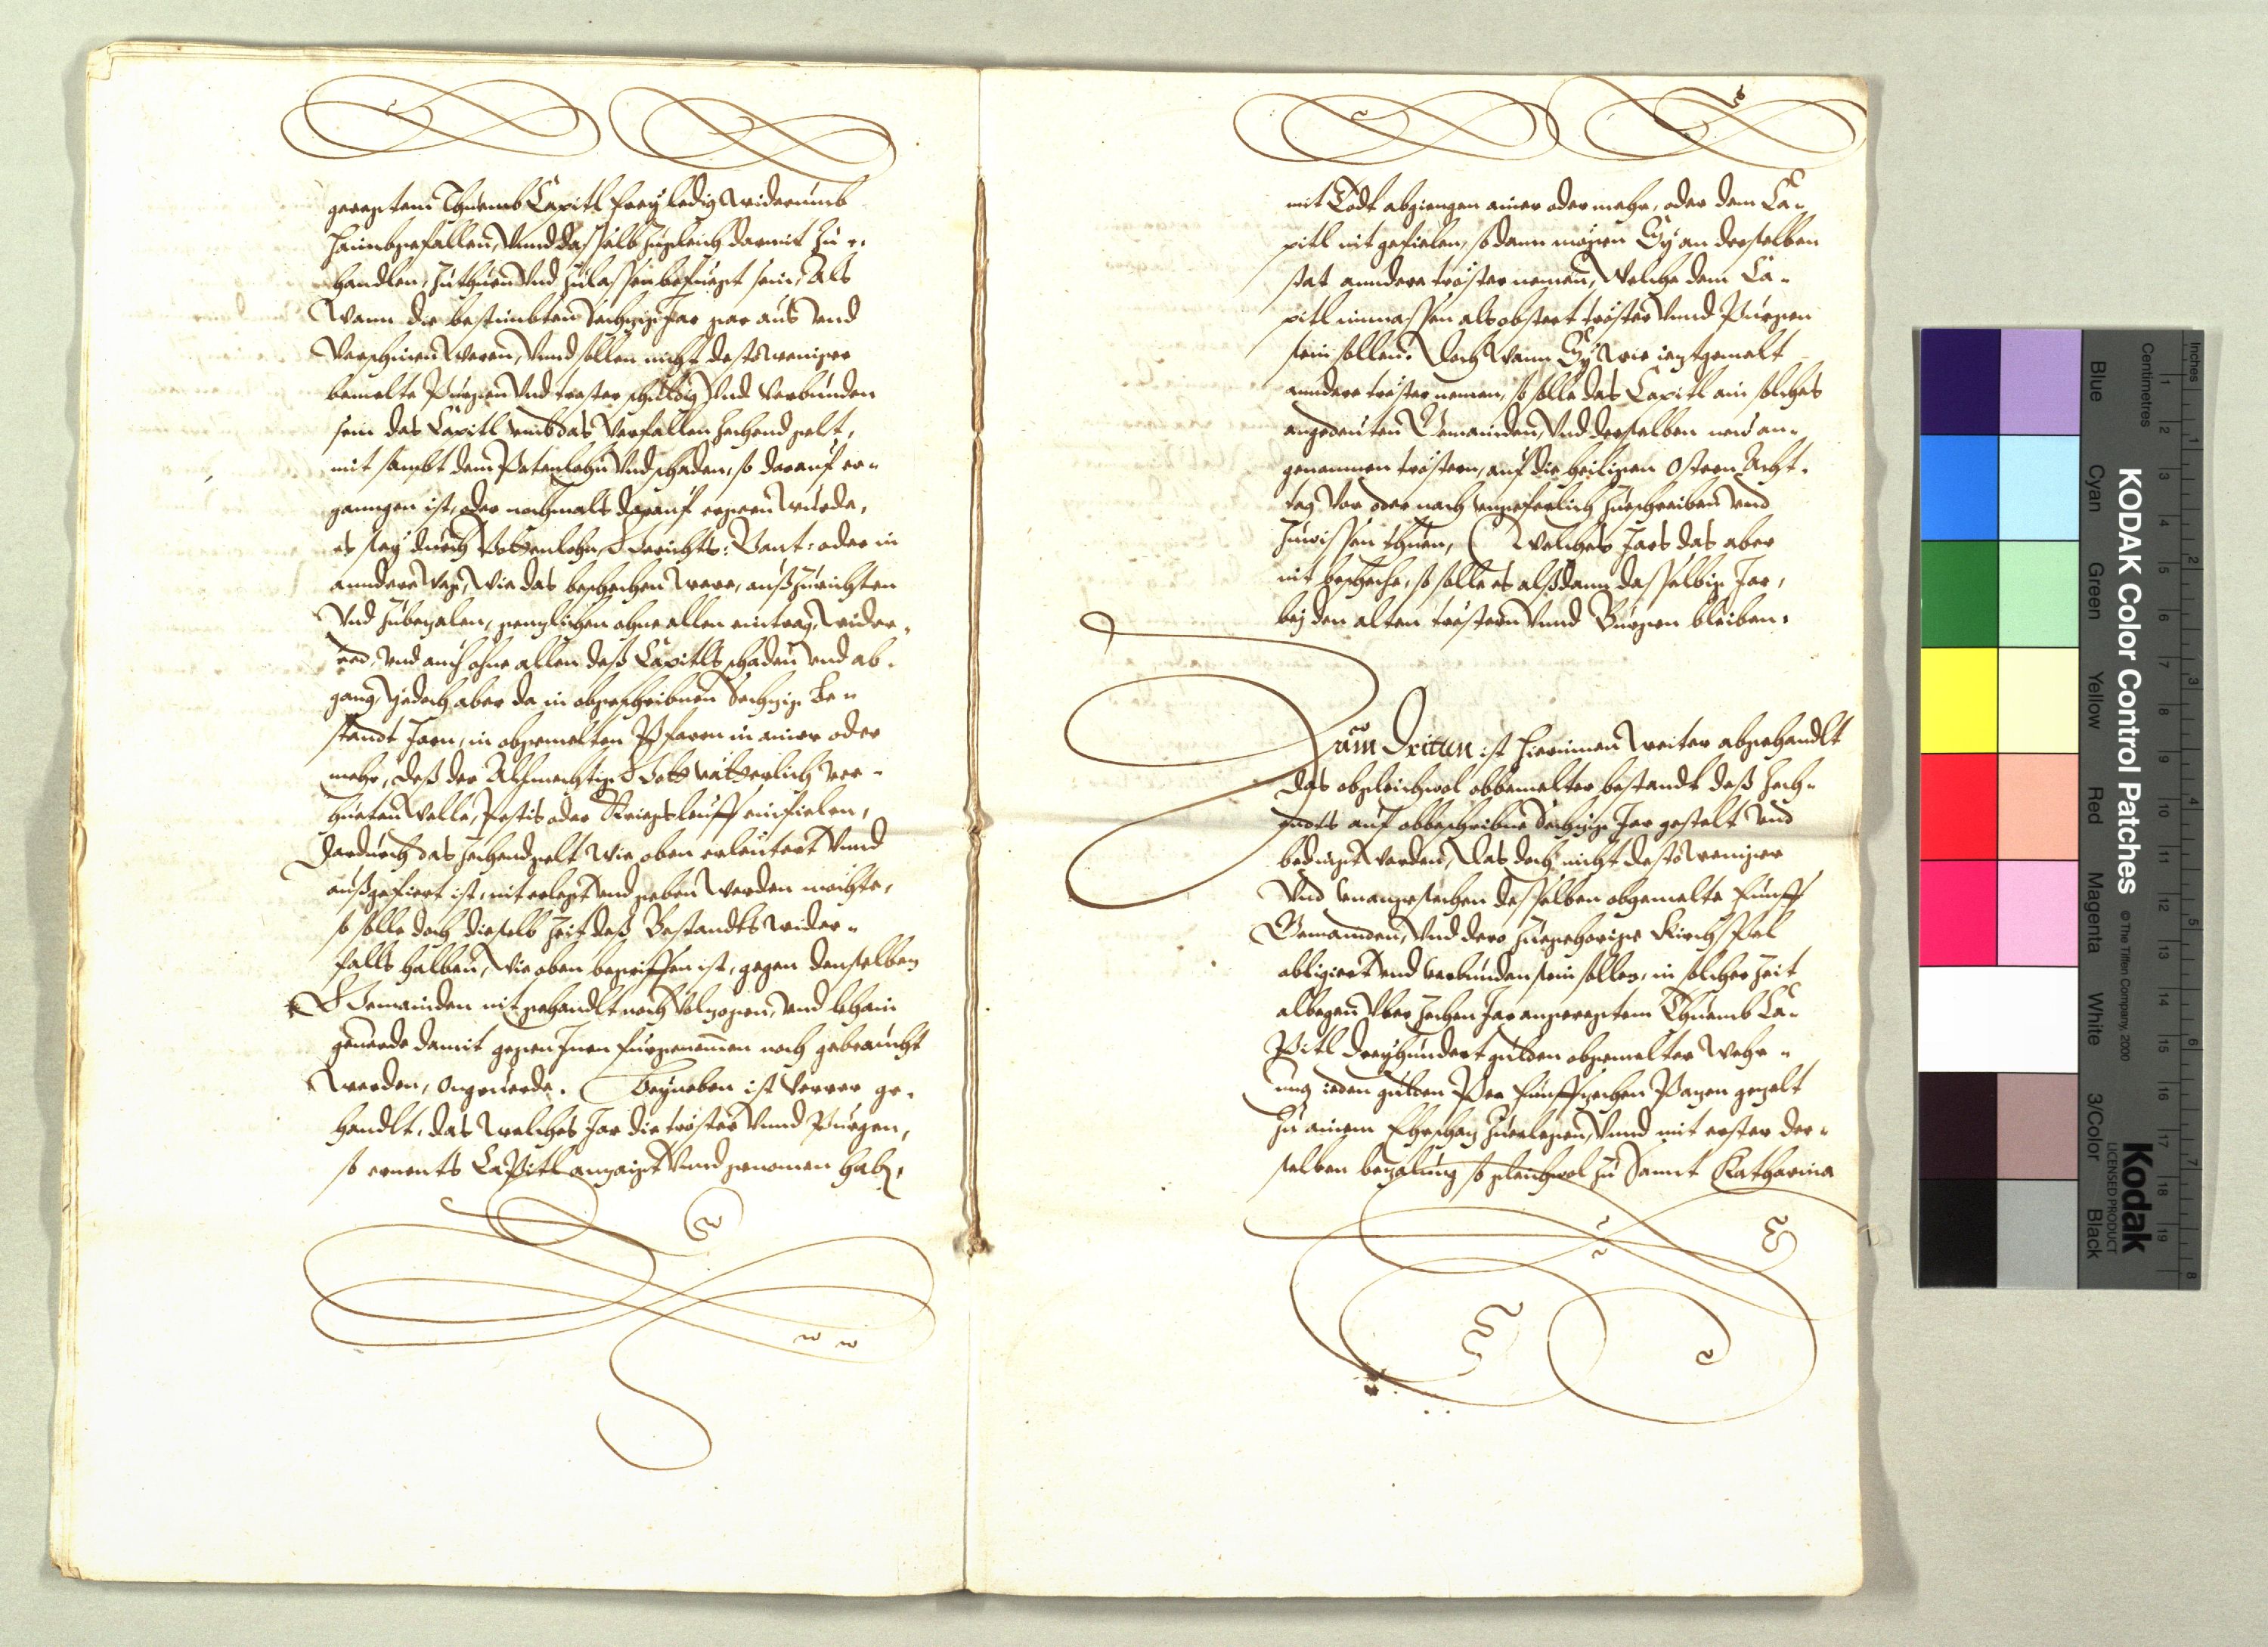 geregtem Thuemb Capitl frey ledig widerumb
haimbgefallen, Vnnd dasselb zugleich darmit zu
handlen, zuthuen vnd zulassen befuegt sein, Als
Wann die bestimbten Sechzig Jar gar aus vnd
Verschinen weren, Vnnd sollen nicht destoweniger
bemelte Purgen vnd troster schuldig vnd verbunden
sein das Capitl vmb das verfallen zechend gelt,
mit sambt dem Potenlohn vnd schaden, so darauf er-
ganngen ist, oder nochmals darauf ergeen wurde,
es sey durch Bottenlohn, Gerichts: Pant: oder in
anndere weg, wie das beschechen were, außzurichten
vnd zubezalen, genzlichen ohne allen eintrag, wider-
red, vnd auch ohne allen deß Capitls schaden vnd ab-
gang, Jedoch aber da in obgeschribnen Sechzig Be-
standt Jarn, in obgemelten Pfarrn in ainer oder
mehr, deß der Allmechtig Gott vätterlich ver-
hueten wolle, Pestis oder Kriegsleuff einfielen,
Dardurch das zechendgelt wie oben erleutert vnnd
außgefiert ist, nit erlegt vnd geben werden möchte,
so solle doch dieselb Zeit deß Bestandts wider-
falls halben, wie oben begriffen ist, gegen denselben
Gemainden nit gehandlt noch volzogen, vnd khain
geuerde damit gegen Inen furgenomen noch gebraucht
werden, ongeuerde. Beyneben ist verrer ge-
handlt, das welches Jar die tröster vnnd Purgen,
so ernents Capitl angaigt vnnd genomen hab,
mit Todt abgiengen ainer oder mehr, oder dem Ca-
pitl nit gefielen, so dann mögen Sy an derselben
stat anndere tröster nemen, welche dem Ca-
pitl inmassen als obsteet tröster vnnd Purgen
sein sollen. Doch wann Sy wie ieztgemelt
anndere tröster nemen, so solle das Capitl ain solches
angedeuten Gemainden, vnd derselben new an-
genommen tröstern, auf die heiligen Ostern Acht-
tag vor oder nach vngeferlich zueschreiben vnd
zuwissen thuen, Welches Jars das aber
nit beschehe, so solle es alßdann dasselbig Jar,
bej den alten tröstern vnnd Burgen bleiben.
Zum Dritten ist hierinnen weiter abgehandlt
das obgleichwol obbemelter bestandt deß zech-
endts auf obbeschribne Sechzig Jar gestelt vnd
bedingt worden, Das doch nicht destoweniger
vnd vnangesechen desselben obgemelte fünff
Gemainden, vnd dero zuegehörige Kirchspel
obligiert vnd verbunden sein sollen, in solcher Zeit
albegen vber zechen Jar angeregtem Thuemb Ca-
Pitl dreyhundert gulden obgemelter wehr-
ung ieden gulden Per funffzechen Pazen gezelt
zu ainem Ehrschaz zuerlegen, vnnd mit erster der-
selben bezalung so gleichwol zu Sannt Katharina